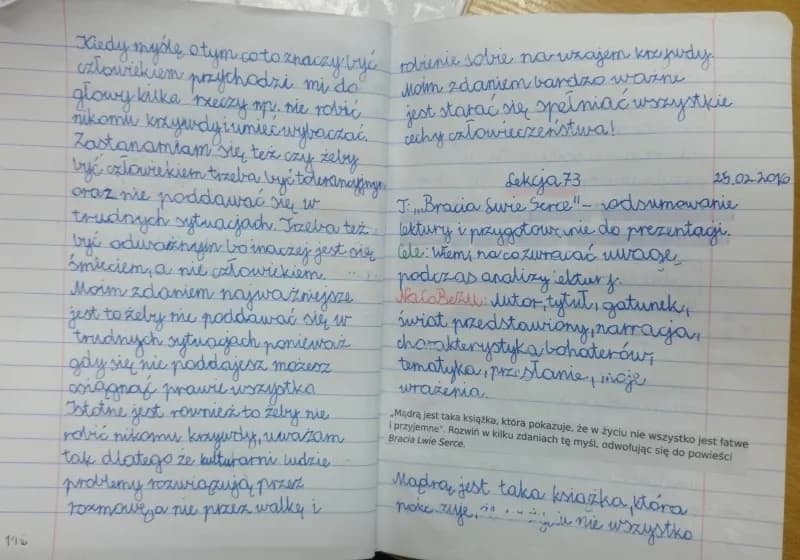 Kiedy myślę o tym co to znaczy być
człowiekiem przychodzi mi do
głowy kilka rzeczy np. nie robić
nikomu krzywdy i umieć wybaczać.
Zastanawiam się też czy żeby
być człowiekiem trzeba być tolerancyjnym
oraz nie poddawać się w
trudnych sytuacjach. Trzeba też
być odważnym bo inaczej jest się
śmieciem, a nie człowiekiem.
Moim zdaniem najważniejsze
jest to żeby nie poddawać się w
trudnych sytuacjach ponieważ
gdy się nie poddajesz możesz
osiągnąć prawie wszystko
Istotne jest również to żeby nie
robić nikomu krzywdy, uważam
tak dlatego że kulturarni ludzie
problemy rozwiązują przez
rozmowę, a nie przez walkę i
robienie sobie na wzajem krzywdy.
Moim zdaniem bardzo ważne
jest starać się spełniać wszystkie
cechy człowieczeństwa!
Lekcja 73 25.02.20
T: „Bracia Lwie Serce" – podsumowanie
lektury i przygotowanie do prezentagi.
Cele: Wiem, na co zwracać uwagę
podczas analizy lektury.
NaCoBeZU: Autor, tytuł, gatunek,
świat przedstawiony, narracja,
charakterystyka bohaterów,
tematyka, przesłanie, moje
wrażenia.
„Mądrą jest taka książka, która pokazuje, że w życiu nie wszystko jest łatwe
i przyjemne". Rozwiń w kilku zdaniach tę myśl, odwołując się do powieści
Bracia Lwie Serce.
Mądrą jest taka książka, która
pokazuje, nie wszystko